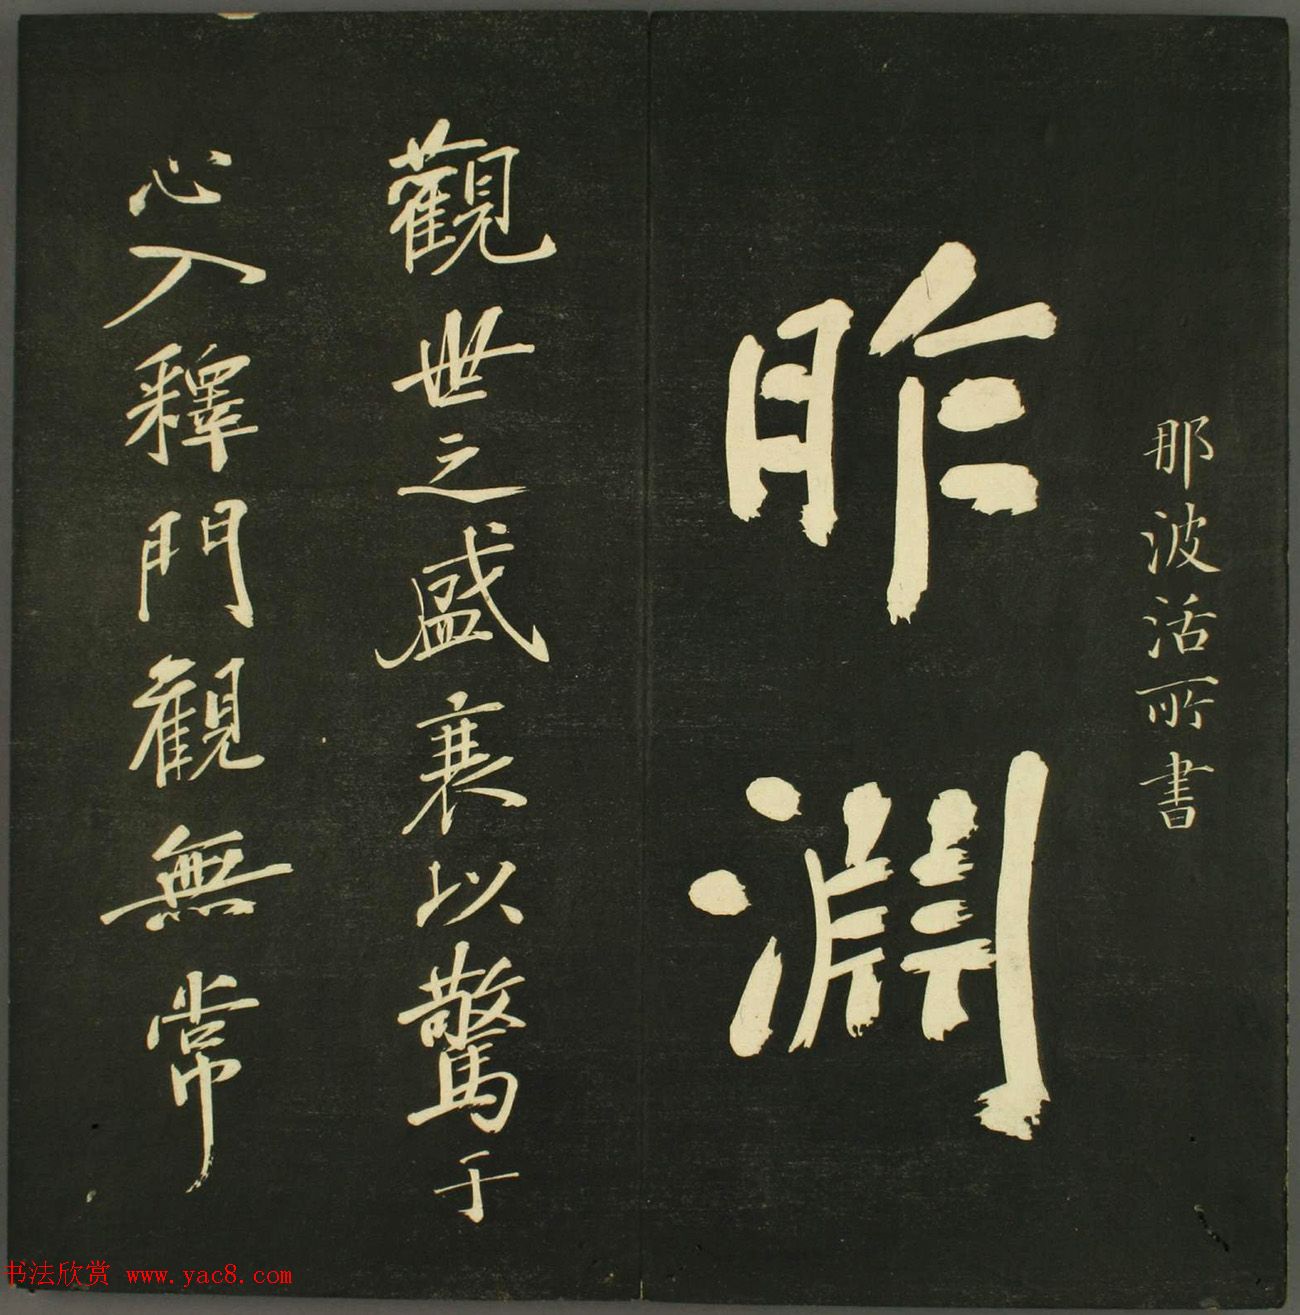 那波活所書
昨淵
觀世之盛衰以驚于
心入釋門觀無常
书法欣赏 www.yac8.com